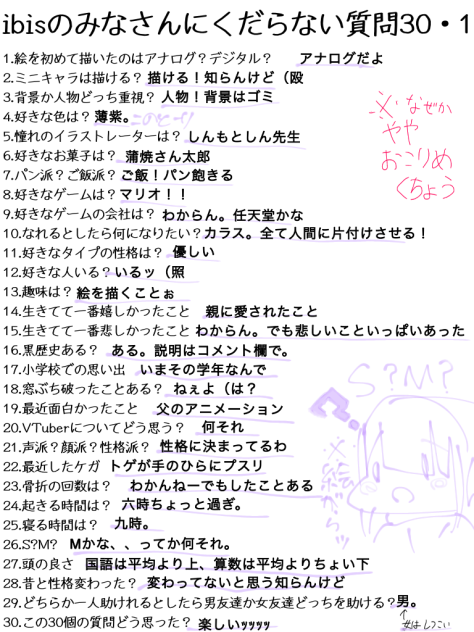 ibisのみなさんにくだらない質問30・1
1.絵を初めて描いたのはアナログ？デジタル？ アナログだよ
2.ミニキャラは描ける？ 描ける！知らんけど（殴
3.背景か人物どっち重視？ 人物！背景はゴミ
4.好きな色は？ 薄紫。このヤーツ！
5.憧れのイラストレーターは？ しんもとしん先生
6.好きなお菓子は？ 蒲焼さん太郎
7.パン派？ご飯派？ ご飯！パン飽きる
8.好きなゲームは？ マリオ！！
9.好きなゲームの会社は？ わからん。任天堂かな
10.なれるとしたら何になりたい？カラス。全て人間に片付けさせる！
11.好きなタイプの性格は？ 優しい
12.好きな人いる？いるッ（照
13.趣味は？ 絵を描くことぉ
14.生きてて一番嬉しかったこと 親に愛されたこと
15.生きてて一番悲しかったこと わからん。でも悲しいこといっぱいあった
16.黒歴史ある？ ある。説明はコメント欄で。
17.小学校での思い出 いまその学年なんで
18.窓ぶち破ったことある？ ねぇよ（は？
19.最近面白かったこと 父のアニメーション
20.VTuberについてどう思う？ 何それ
21.声派？顔派？性格派？ 性格に決まってるわ
22.最近したケガ トゲが手のひらにプスリ
23.骨折の回数は？ わかんねーでもしたことある
24.起きる時間は？ 六時ちょっと過ぎ。
25.寝る時間は？ 九時。
26.S?M? Mかな、、ってか何それ。
27.頭の良さ 国語は平均より上、算数は平均よりちょい下
28.昔と性格変わった？ 変わってないと思う知らんけど
29.どちらか一人助けれるとしたら男友達か女友達どっちを助ける？男。
30.この30個の質問どう思った？ 楽しいッッッッ
※なぜか
やや
おこりめ
くちょう
S?M?
?
↑
女はしつこい